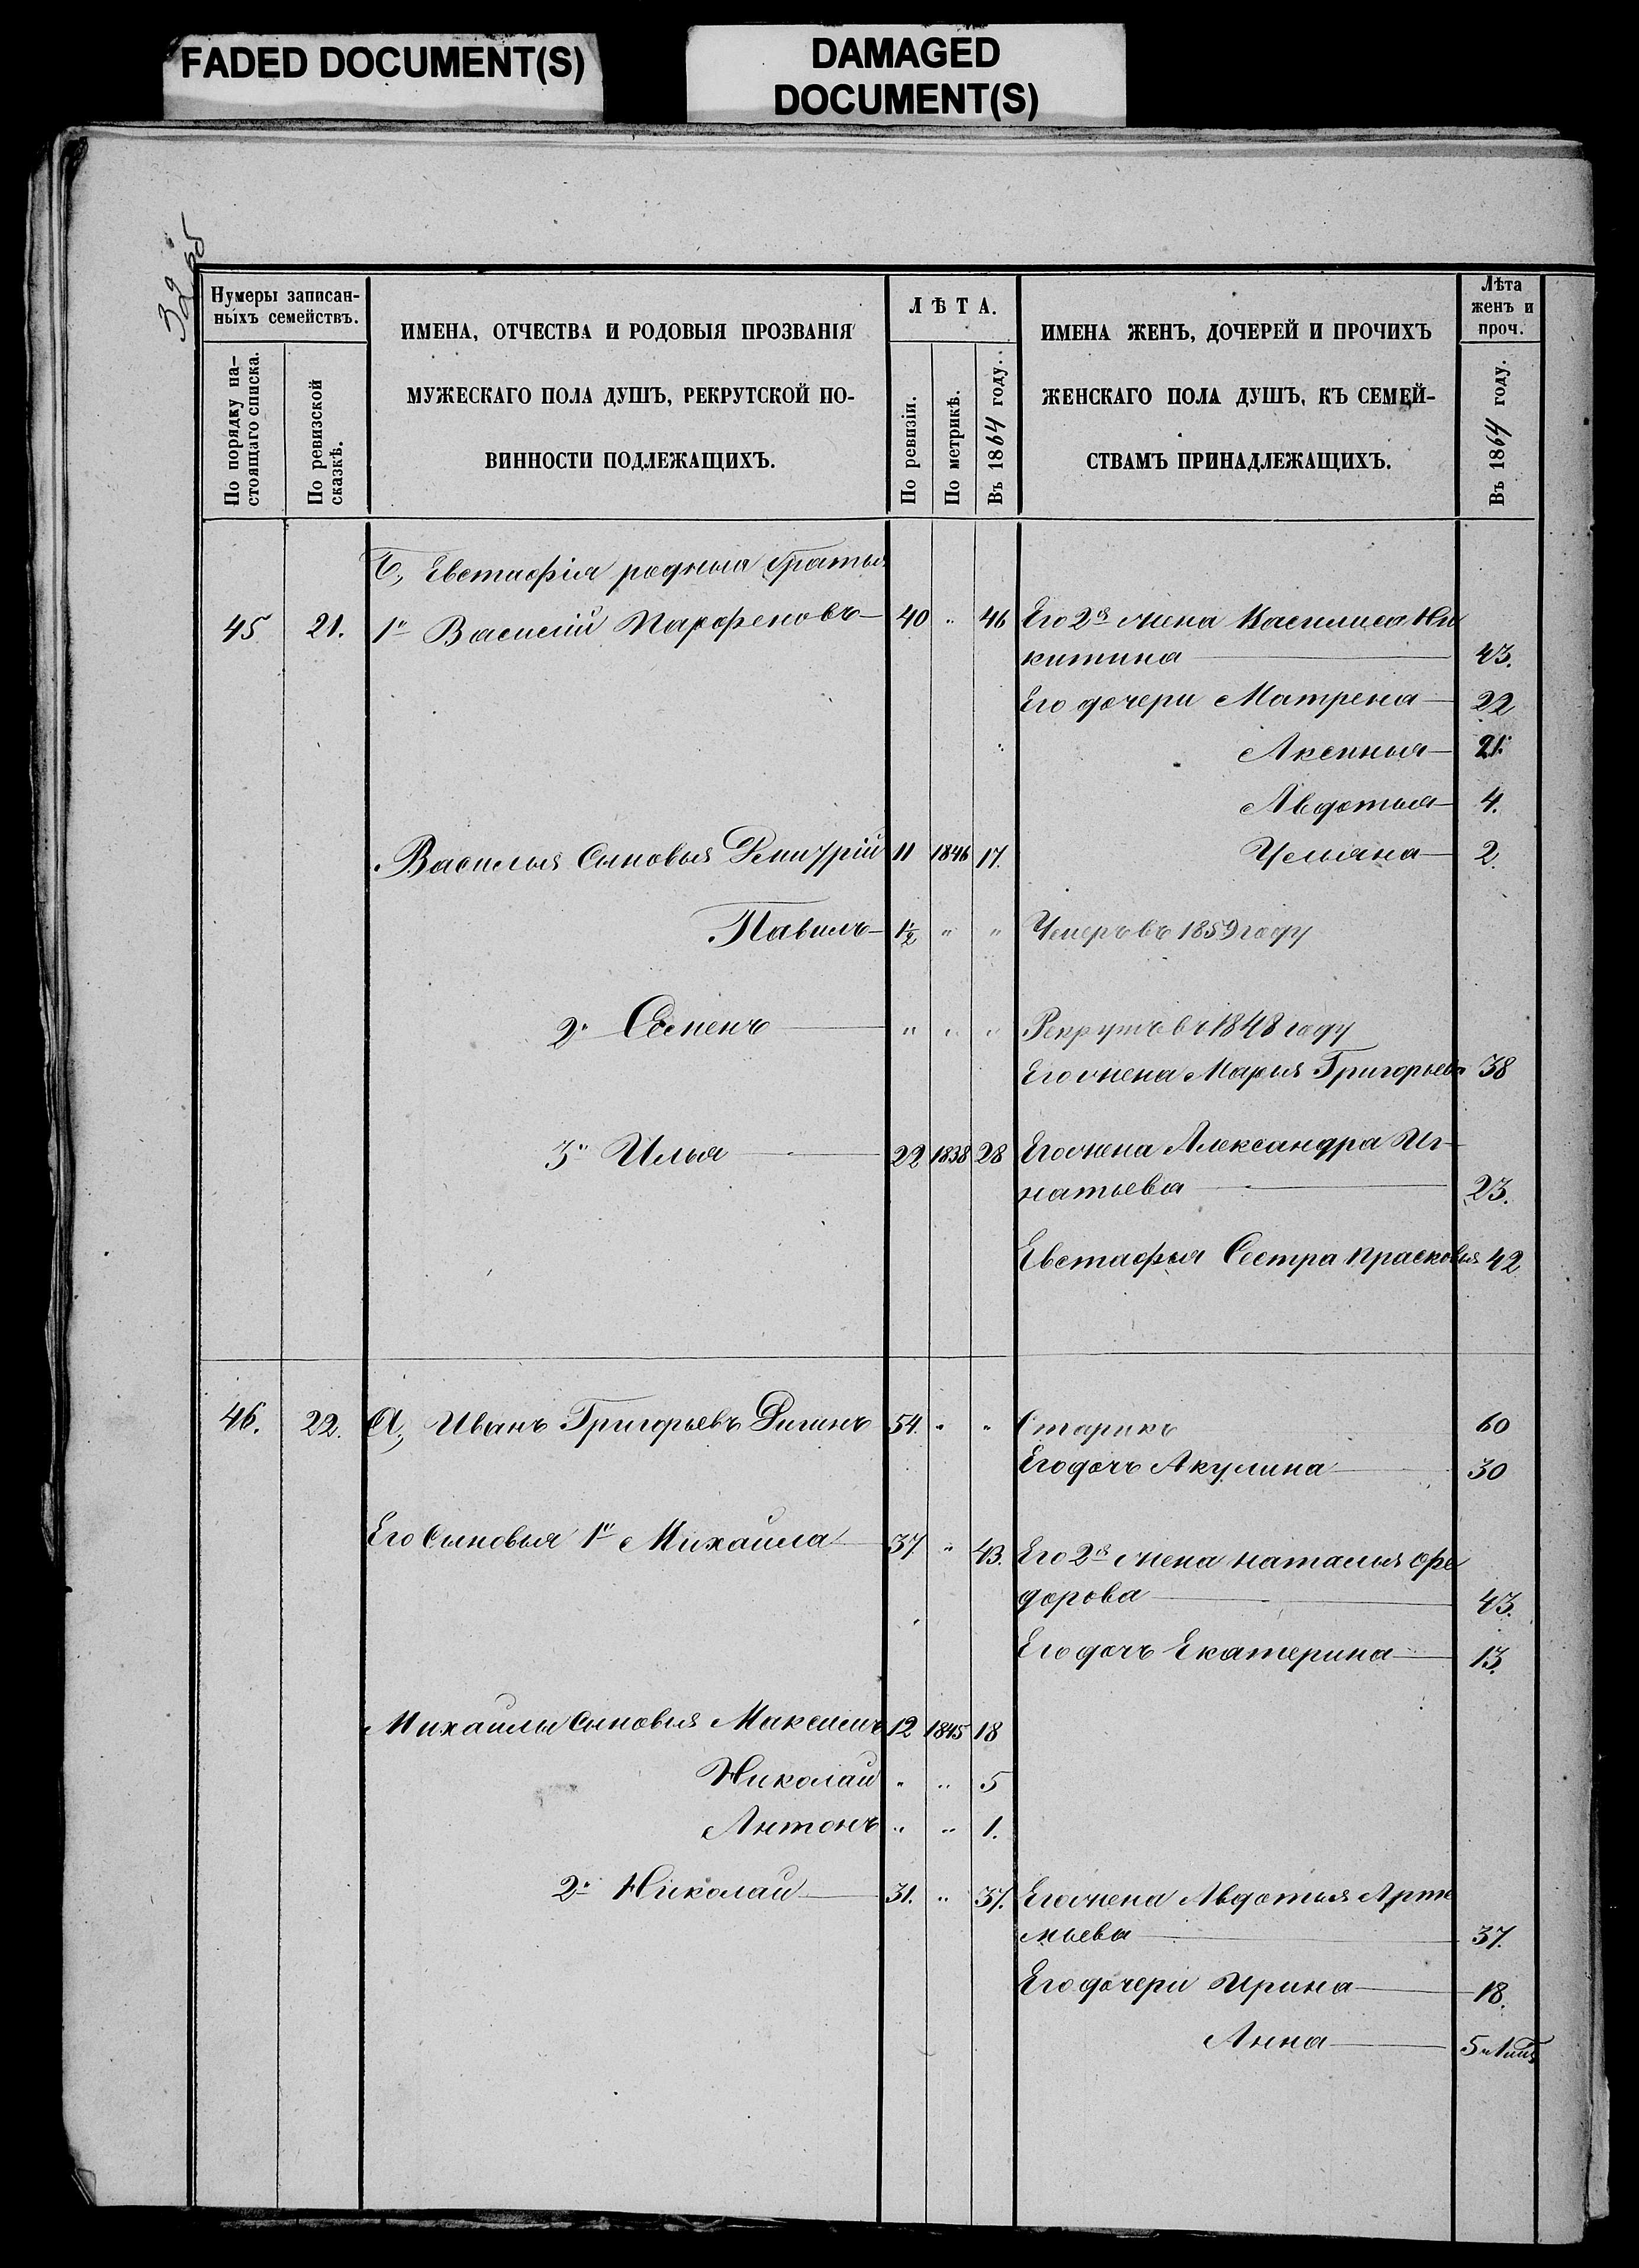 FADED DOCUMENT(S)
DAMAGED
DOCUMENT(S)
Нумеры записан-
ныхъ семействъ.
По порядку на-
стоящаго списка.
По ревизской
сказкѣ.
ИМЕНА, ОТЧЕСТВА И РОДОВЫЯ ПРОЗВАНІЯ
МУЖЕСКАГО ПОЛА ДУШЪ, РЕКРУТСКОЙ ПО-
ВИННОСТИ ПОДЛЕЖАЩИХЪ.
ЛѢТА.
По ревизіи.
По метрикѣ.
Въ 1864 году.
ИМЕНА ЖЕНЪ, ДОЧЕРЕЙ И ПРОЧИХЪ
ЖЕНСКАГО ПОЛА ДУШЪ, КЪ СЕМЕЙ-
СТВАМЪ ПРИНАДЛЕЖАЩИХЪ.
Лѣта
женъ и
проч.
Въ 1864 году.
Б, Евстафія родныя братья
45 21. 1й Василій Парфеновъ 40 " 46 Его 2я жена Василиса Ни
китина 43.
Его дочери Матрена 22
Аксинья 21.
Авдотья 4.
Василья Сыновья Дмитрій 11 1846 17. Ульяна 2.
Павилъ 1/2 " " Умеръ въ 1859 году
2й Семенъ " " " Рекрутъ въ 1848 году
Его жена Марья Григорьева 38
3й Илья 22 1838 28 Его жена Александра Иг-
натьева 23.
Евстафья Сестра Прасковья 42
46. 22. А, Иванъ Григорьевъ 54. " " Старикъ 60
Его дочь Акулина 30
Его Сыновья 1й Михаила 37. " 43. Его 2я жена Наталья Фе
дорова 43.
Его дочь Екатерина 13.
Михаилы Сыновья Максимъ 12 1845 18
Николай " " 5
Антонъ " " 1.
2й Николай 31. " 37. Его жена Авдотья Арте
мьева 37.
Его дочери Ирина 18.
Анна 5